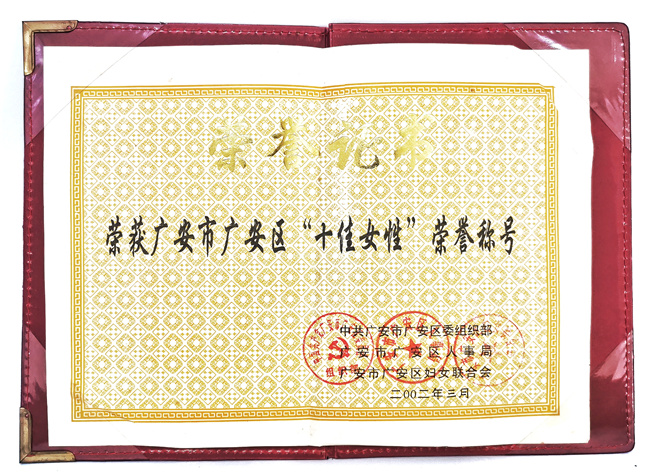 荣誉证书
荣获广安市广安区“十佳女性”荣誉称号
中共广安市广安区委组织部
广安市广安区人事局
广安市广安区妇女联合会
二00二年三月